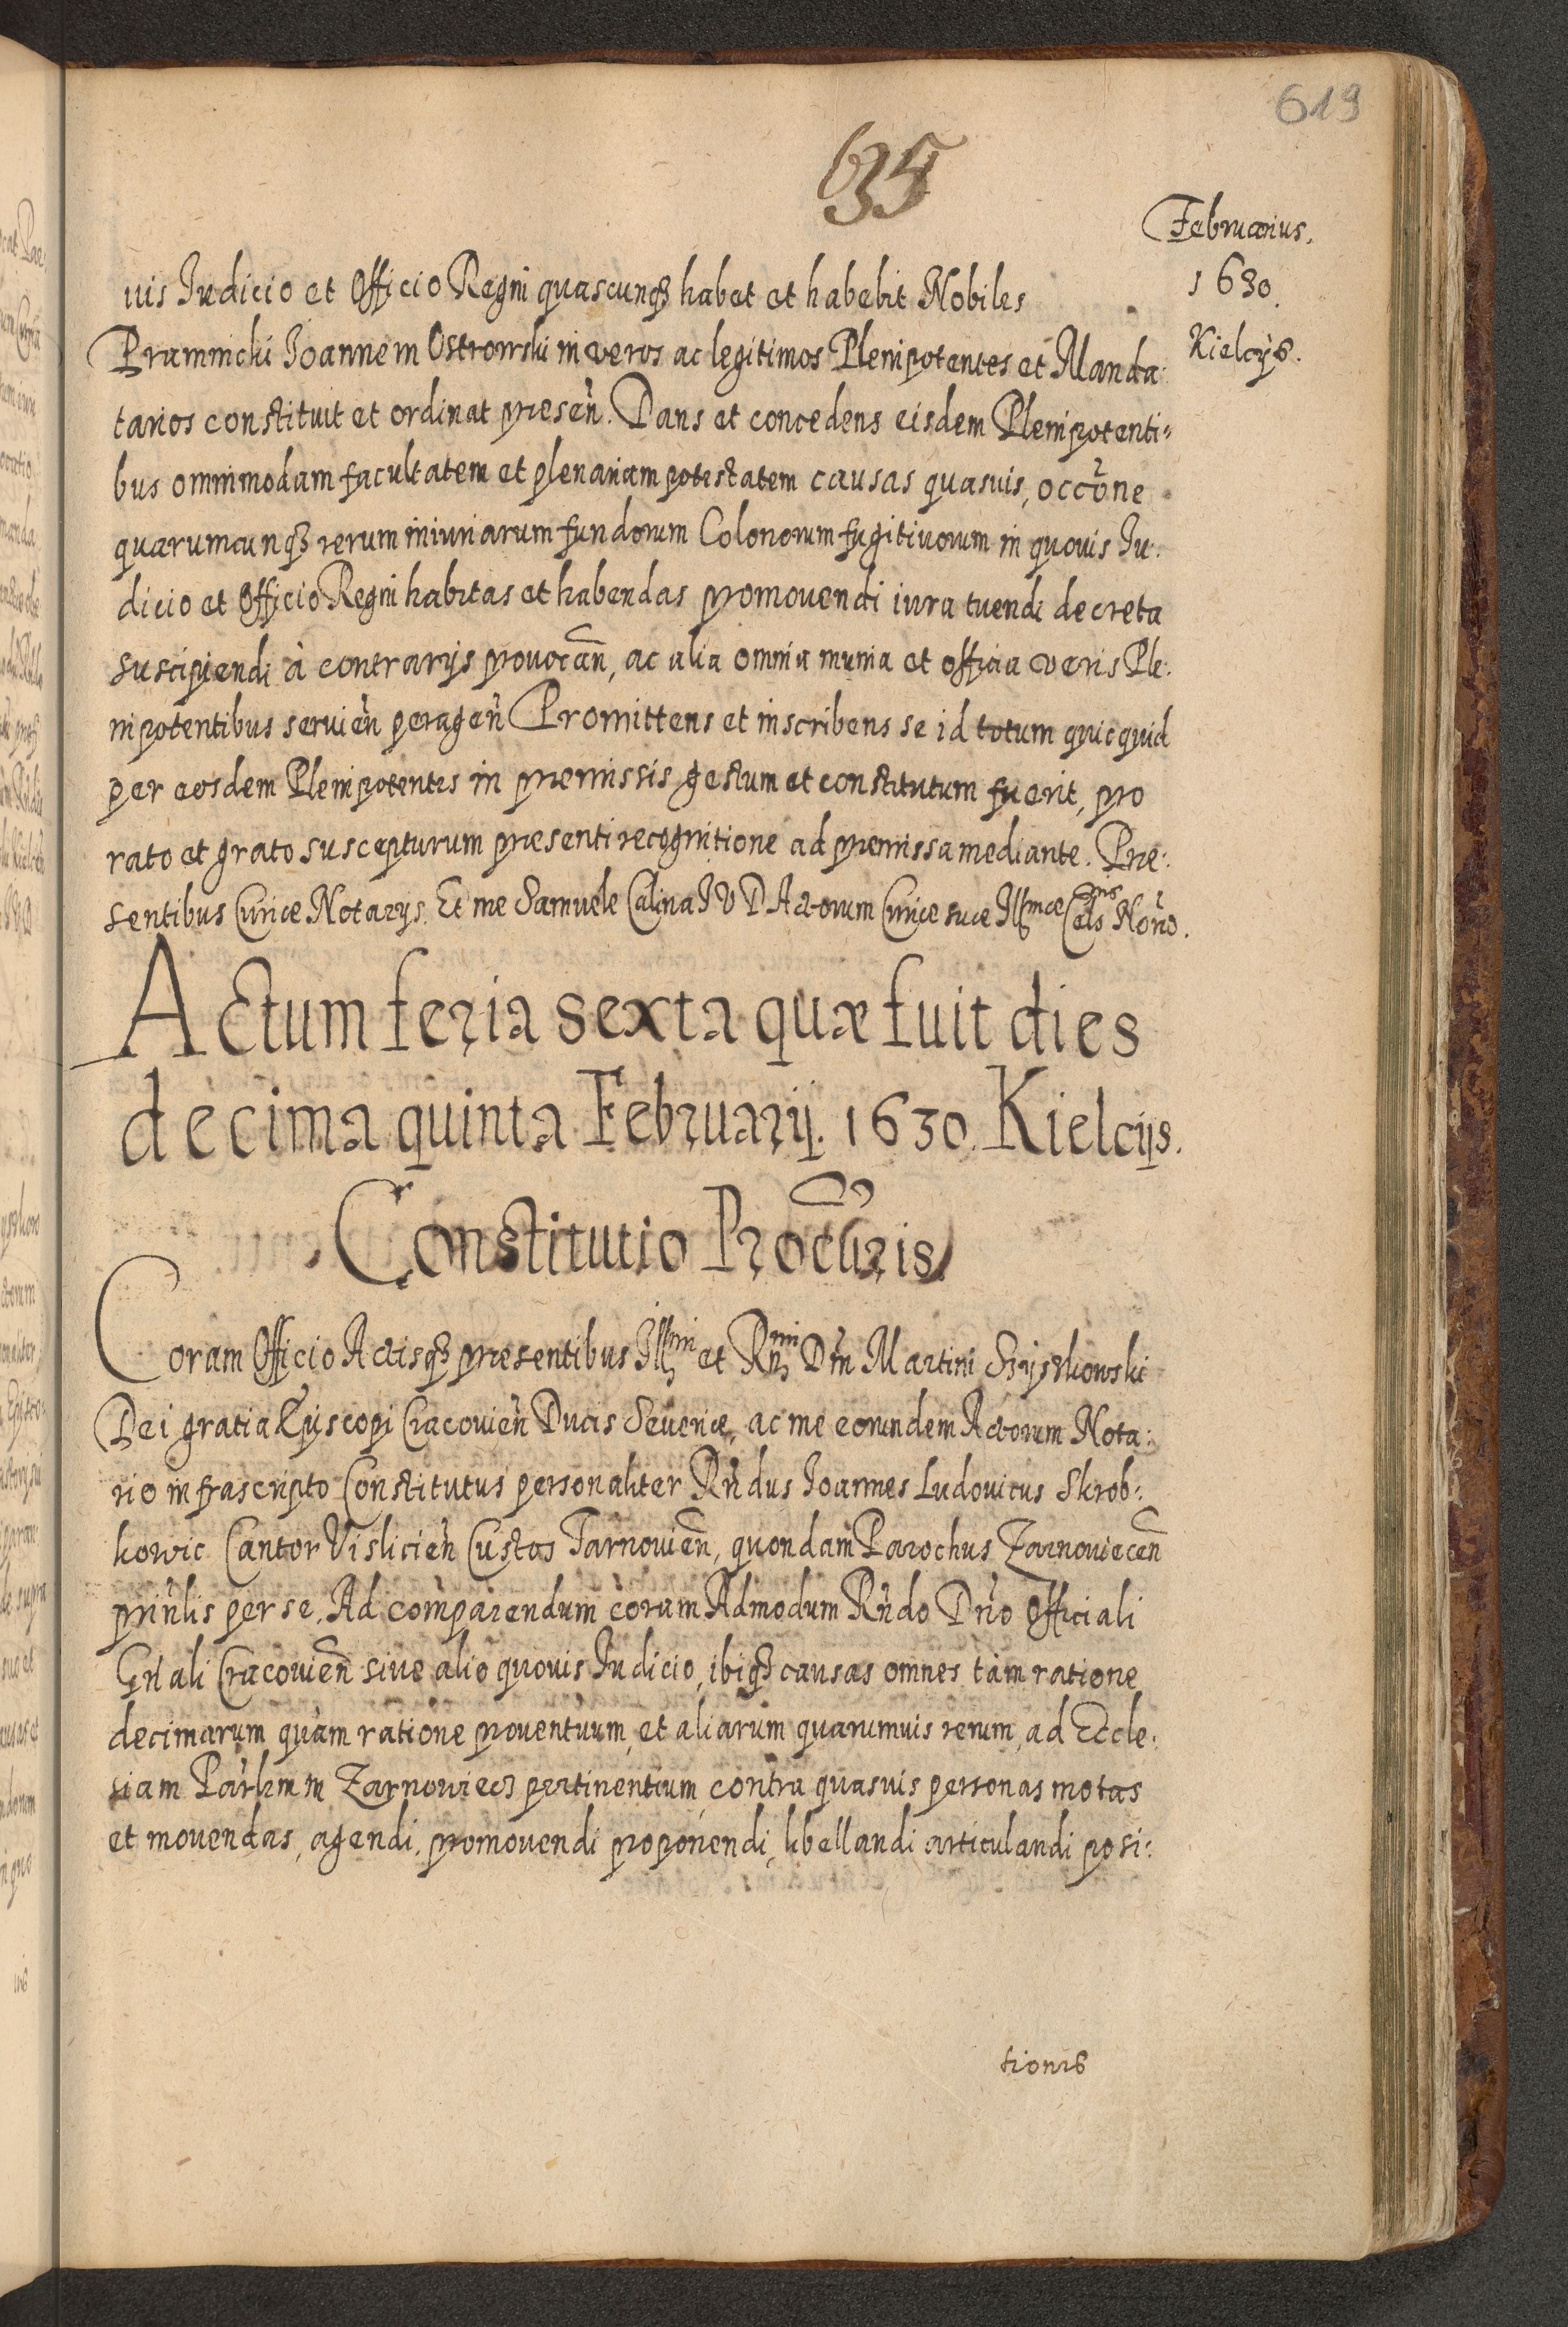 619
635
Februarius.
1630.
Kielcijs.
uis Iudicio et Officio Regni quascunqȝ habet et habebit Nobiles
Joannem Ostrowski in veros ac legitimos Plenipotentes et Manda:
tarios constituit et ordinat præsen̄. Dans et concedens eisdem Plenipotenti=
bus omnimodam facultatem et plenariam potestatem causas quasuis, occōne
quarumcunqȝ rerum iniuriarum fundorum Colonorum fugitiuorum in quouis Iu:
dicio et Officio Regni habitas et habendas promouendi iura tuendi decreta
suscipiendi à contrarijs prouocan̄, ac alia omnia munia et officia veris Ple:
nipotentibus seruien̄ peragen̄ Promittens et inscribens se id totum quicquid
per eosdem Plenipotentes in præmissis gestum et constitutum fuerit, pro
rato et grato suscepturum præsenti recognitione ad præmissa mediante. Præ:
sentibus Curiæ Notarijs. Et me Samuele Calina I V D Actorum Curiæ suæ Illmæ Celsnis Norio.
Actum feria sexta quæ fuit dies
decima quinta Februarij. 1630. Kielcijs.
Constitutio Procuris.
Coram Officio Actisqȝ præsentibus Illmi et Rndmi Dn̄i Martini Szyszkowski
Dei gratia Episcopi Cracouien̄ Ducis Seueriæ, ac me eorundem Actorum Nota:
rio infrascripto Constitutus personaliter Rn̄dus Joannes Ludouicus Skrob:
kowic Cantor Vislicien̄ Custos Tarnouien̄, quondam Parochus Zarnouiecen̄
prin̄lis per se. Ad comparendum coram Admodum Rn̄do Dn̄o Officiali
Gn̄ali Cracouien̄ siue alio quouis Iudicio, ibiqȝ causas omnes tàm ratione
decimarum quàm ratione prouentuum, et aliarum quarumuis rerum, ad Eccle:
siam Par̄lem in Zarnowiecȝ pertinentium contra quasuis personas motas
et mouendas, agendi, promouendi proponendi, libellandi articulandi posi:
tionis